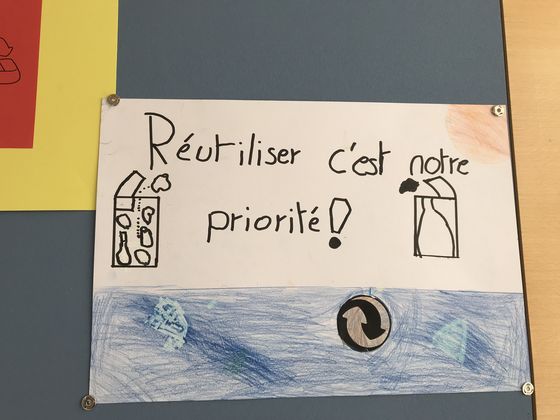 Réutiliser c'est notre
priorité!